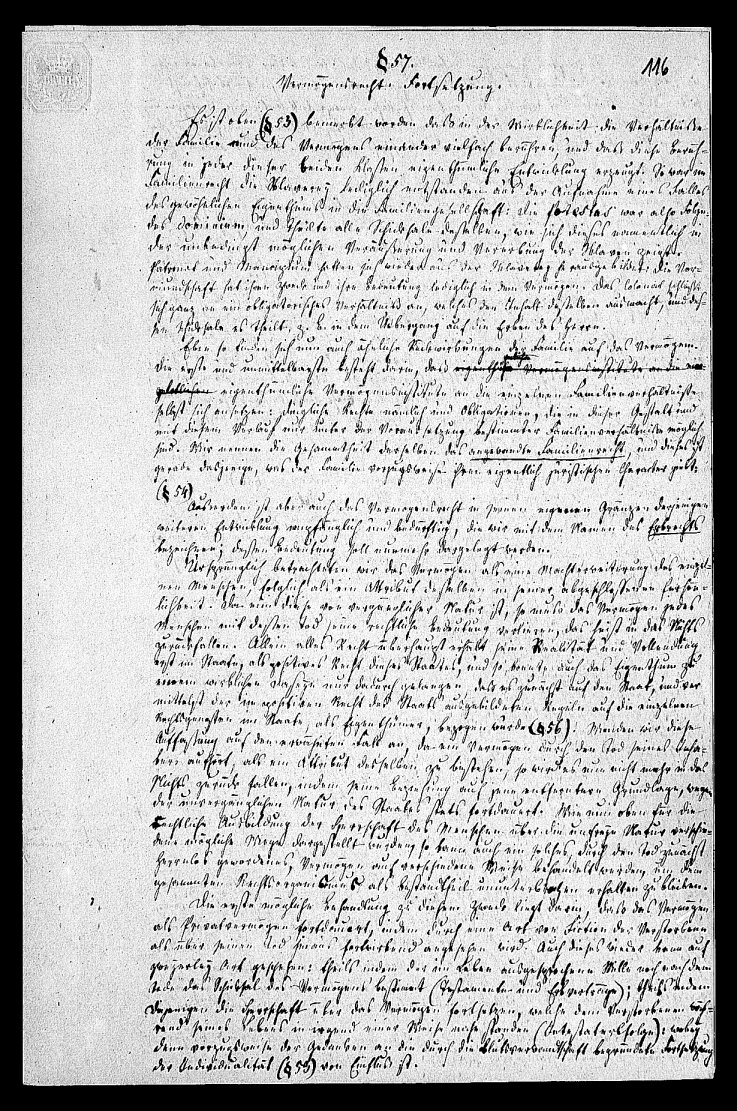 § 57.
116
Vermögensrecht. Fortsetzung.
Es ist oben (§ 53) bemerkt worden daß in der Wirklichkeit die Verhältnisse
der Familie und des Vermögens einander vielfach berühren, und daß diese Berüh-
rung in jeder dieser beiden Klassen eigenthümliche Entwicklung erzeugt. So war im
Familienrecht die Sklaverey lediglich entstanden aus der Aufnahme eines Falles
des gewöhnlichen Eigenthums in die Familiengesellschaft: Die potestas war also Folge
des dominium, und theilte alle Schicksale desselben, wie sich dieses namentlich in
der unbedingt möglichen Veräußerung und Vererbung der Sklaven zeigt.
Patronat und Mancipium hatten sich wieder aus der Sklaverey herausgebildet. Die Vor-
mundschaft hat ihren Zweck und ihre Bedeutung lediglich in dem Vermögen. Das Colonat schließt
sich ganz an ein obligatorisches Verhältniß an, welches den Inhalt desselben ausmacht, und des-
sen Schicksale es theilt, z. B. in dem Übergang auf die Erben des Herrn.
Eben so finden sich nun auch ähnliche Rückwirkungen der Familie auf das Vermögen.
Die erste und unmittelbarste besteht darin, daß
eigenthümliche Vermögensinstitute an die einzelnen Familienverhältnisse
selbst sich ansetzen: dingliche Rechte nämlich und Obligationen, die in dieser Gestalt und
mit diesem Verlauf nur unter der Voraussetzung bestimmter Familienverhältnisse möglich
sind. Wir nennen die Gesamtheit derselben das angewandte Familienrecht, und dieses ist
gerade dasjenige, was der Familie vorzugsweise ihren eigentlich juristischen Charakter giebt.
(§ 54)
Außerdem ist aber auch das Vermögensrecht in seinen eigenen Gränzen derjenigen
weiteren Entwicklung empfänglich und bedürftig, die wir mit dem Namen des Erbrechts
bezeichnen; dessen Bedeutung soll nunmehr dargelegt werden.
Ursprünglich betrachteten wir das Vermögen als eine Machterweiterung des einzel-
nen Menschen, folglich als ein Attribut desselben in seiner abgeschlossenen Persön-
lichkeit. Da nun diese von vergänglicher Natur ist, so muß das Vermögen jedes
Menschen mit dessen Tod seine rechtliche Bedeutung verlieren, das heißt in das Nichts
zurückfallen. Allein alles Recht überhaupt erhält seine Realität und Vollendung
erst im Staate, als positives Recht dieses Staates, und so konnte auch das Eigenthum zu
einem wirklichen Daseyn nur dadurch gelangen, daß es zunächst auf den Staat, und ver-
mittelst der im positiven Recht des Staats ausgebildeten Regeln auf die einzelnen
Rechtsgenossen im Staate, als Eigenthümer, bezogen wurde (§ 56). Wenden wir diese
Auffassung auf den erwähnten Fall an, da ein Vermögen durch den Tod seines Inha-
bers aufhört, als ein Attribut desselben zu bestehen, so wird es nun nicht mehr in das
Nichts zurück fallen, indem seine Beziehung auf jene entferntere Grundlage, wegen
der unvergänglichen Natur des Staates stets fortdauert. Wie nun oben für die
rechtliche Ausbildung der Herrschaft des Menschen über die unfreie Natur verschie-
dene mögliche Wege dargestellt wurden, so kann auch ein solches, durch den Tod zunächst
herrenlos gewordenes, Vermögen auf verschiedene Weise behandelt werden, um dem
gesammten Rechtsorganismus als Bestandtheil ununterbrochen erhalten zu bleiben.
Die erste mögliche Behandlung zu diesem Zweck liegt darin, daß das Vermögen
als Privatvermögen fortdauert, indem durch eine Art von Fiction der Verstorbene
als über seinen Tod hinaus fortwirkend angesehen wird. Auch dieses wieder kann auf
zweyerley Art geschehen: theils indem der im Leben ausgesprochene Wille noch nach dem
Tode das Schicksal des Vermögens bestimmt (Testamente und Erbverträge); theils indem
Diejenigen die Herrschaft über das Vermögen fortsetzen, welche dem Verstorbenen wäh-
rend seines Lebens in irgend einer Weise nahe standen (Intestaterbfolge): wobey
denn vorzugsweise der Gedanken an die durch die Blutsverwandtschaft begründete Fortsetzung
der Individualität (§ 53) von Einfluß ist.